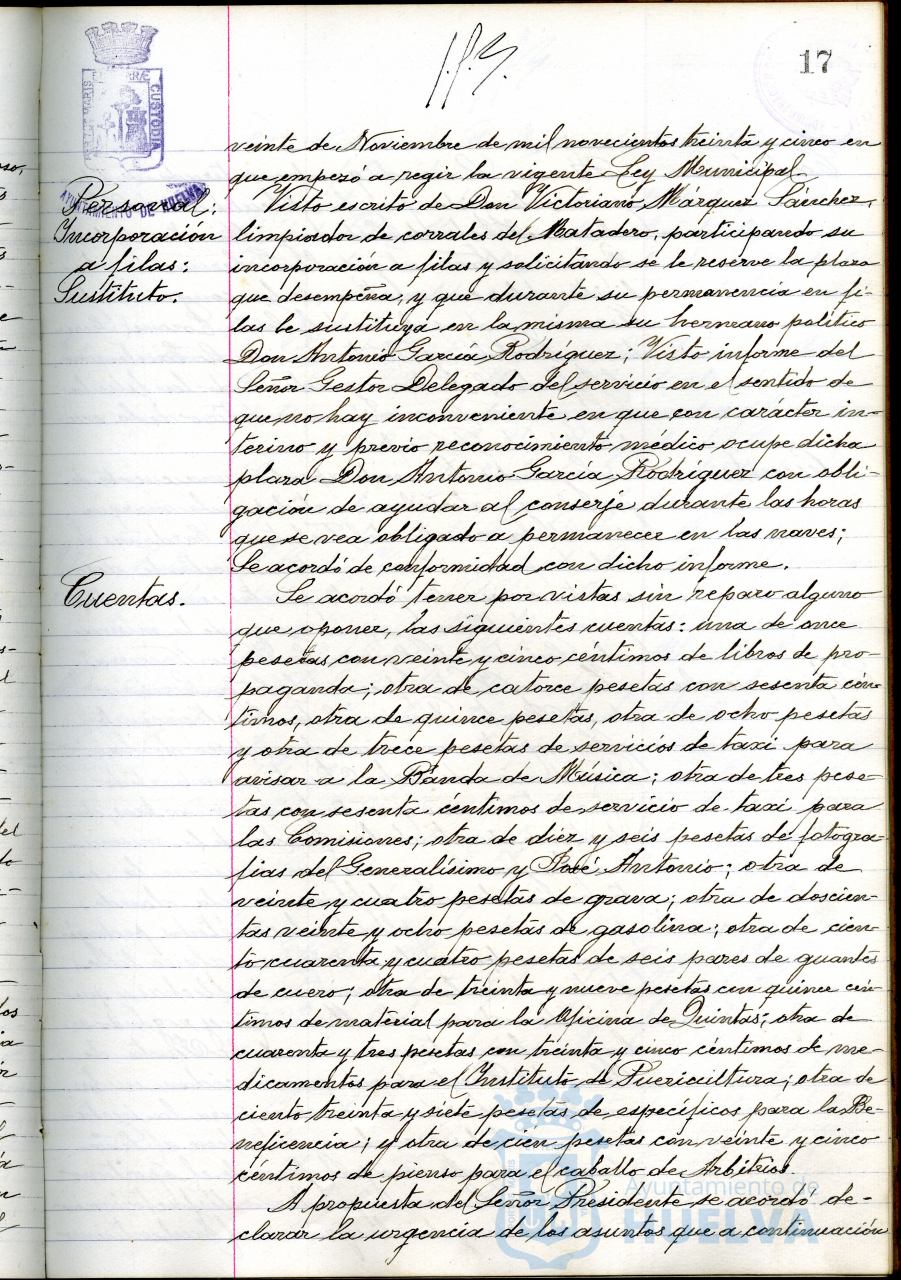 17
PORTUS MARIS ET TERRÆ CUSTODIA
AYUNTAMIENTO DE HUELVA
veinte de Noviembre de mil novecientos treinta y cinco en
que empezó a regir la vigente Ley Municipal.
Personal:
Incorporación
a filas:
Sustituto.
Visto escrito de Don Victoriano Márquez Sánchez,
limpiador de corrales del Matadero, participando su
incorporación a filas y solicitando se le reserve la plaza
que desempeña, y que durante su permanencia en fi-
las le sustituya en la misma su hermano político
Don Antonio García Rodríguez; Visto informe del
Señor Gestor Delegado del servicio en el sentido de
que no hay inconveniente en que con carácter in-
terino y previo reconocimiento médico ocupe dicha
plaza Don Antonio García Rodríguez con obli-
gación de ayudar al conserje durante las horas
que se vea obligado a permanecer en las naves;
Se acordó de conformidad con dicho informe.
Cuentas.
Se acordó tener por vistas sin reparo alguno
que oponer, las siguientes cuentas: una de once
pesetas con veinte y cinco céntimos de libros de pro-
paganda; otra de catorce pesetas con sesenta cén-
timos, otra de quince pesetas, otra de ocho pesetas
y otra de trece pesetas de servicios de taxi para
avisar a la Banda de Música; otra de tres pese-
tas con sesenta céntimos de servicio de taxi para
las Comisiones; otra de diez y seis pesetas de fotogra-
fias del Generalísimo y José Antonio; otra de
veinte y cuatro pesetas de grava; otra de doscien-
tas veinte y ocho pesetas de gasolina; otra de cien-
to cuarenta y cuatro pesetas de seis pares de guantes
de cuero; otra de treinta y nueve pesetas con quince cén-
timos de material para la Oficina de Quintas; otra de
cuarenta y tres pesetas con treinta y cinco céntimos de me-
dicamentos para el Instituto de Puericultura; otra de
ciento treinta y siete pesetas de específicos para la Be-
neficencia; y otra de cien pesetas con veinte y cinco
céntimos de pienso para el caballo de Arbitrios.
A propuesta del Señor Presidente se acordó de-
clarar la urgencia de los asuntos que a continuación
Ayuntamiento de
HUELVA